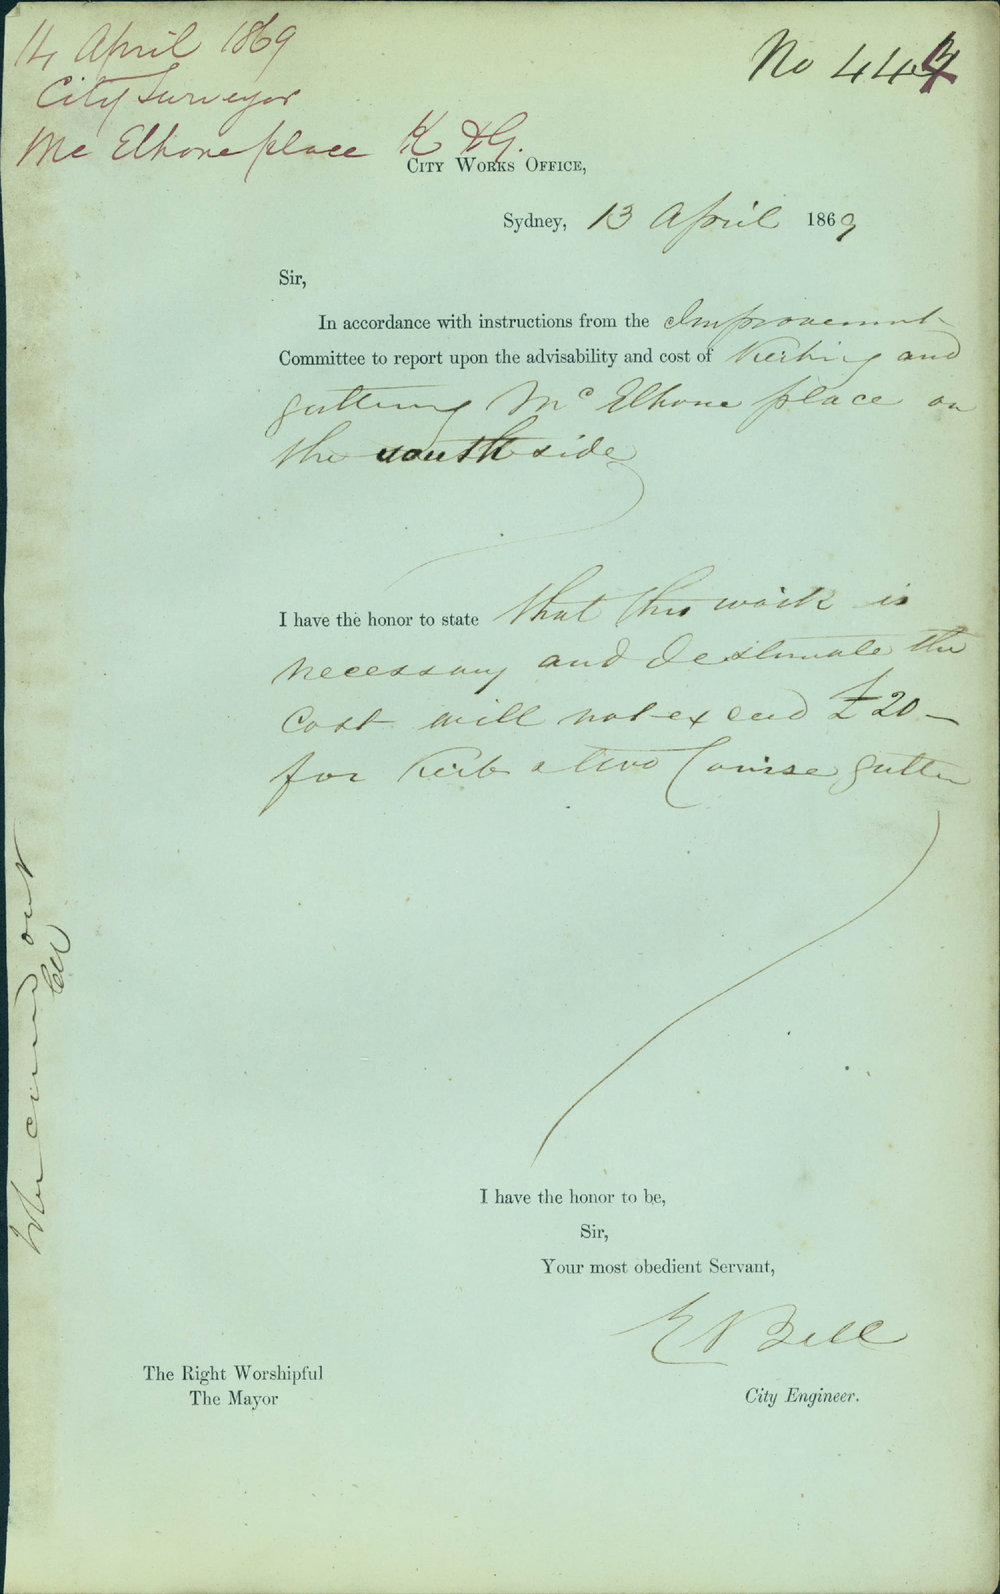 14 April 1869
City Surveyor
Mc Elhone place K & G.
No 447
City Works Office,
Sydney, 13 April 1869
Sir,
In accordance with instructions from the Improvement
Committee to report upon the advisability and cost of Kerbing and
guttering Mc Elhone place on
the south side
I have the honor to state that this work is
necessary and I estimate the
cost will not exceed £20—
for Kerb & two Course gutter
I have the honor to be,
Sir,
Your most obedient Servant,
E Bell
City Engineer.
The Right Worshipful
The Mayor
out